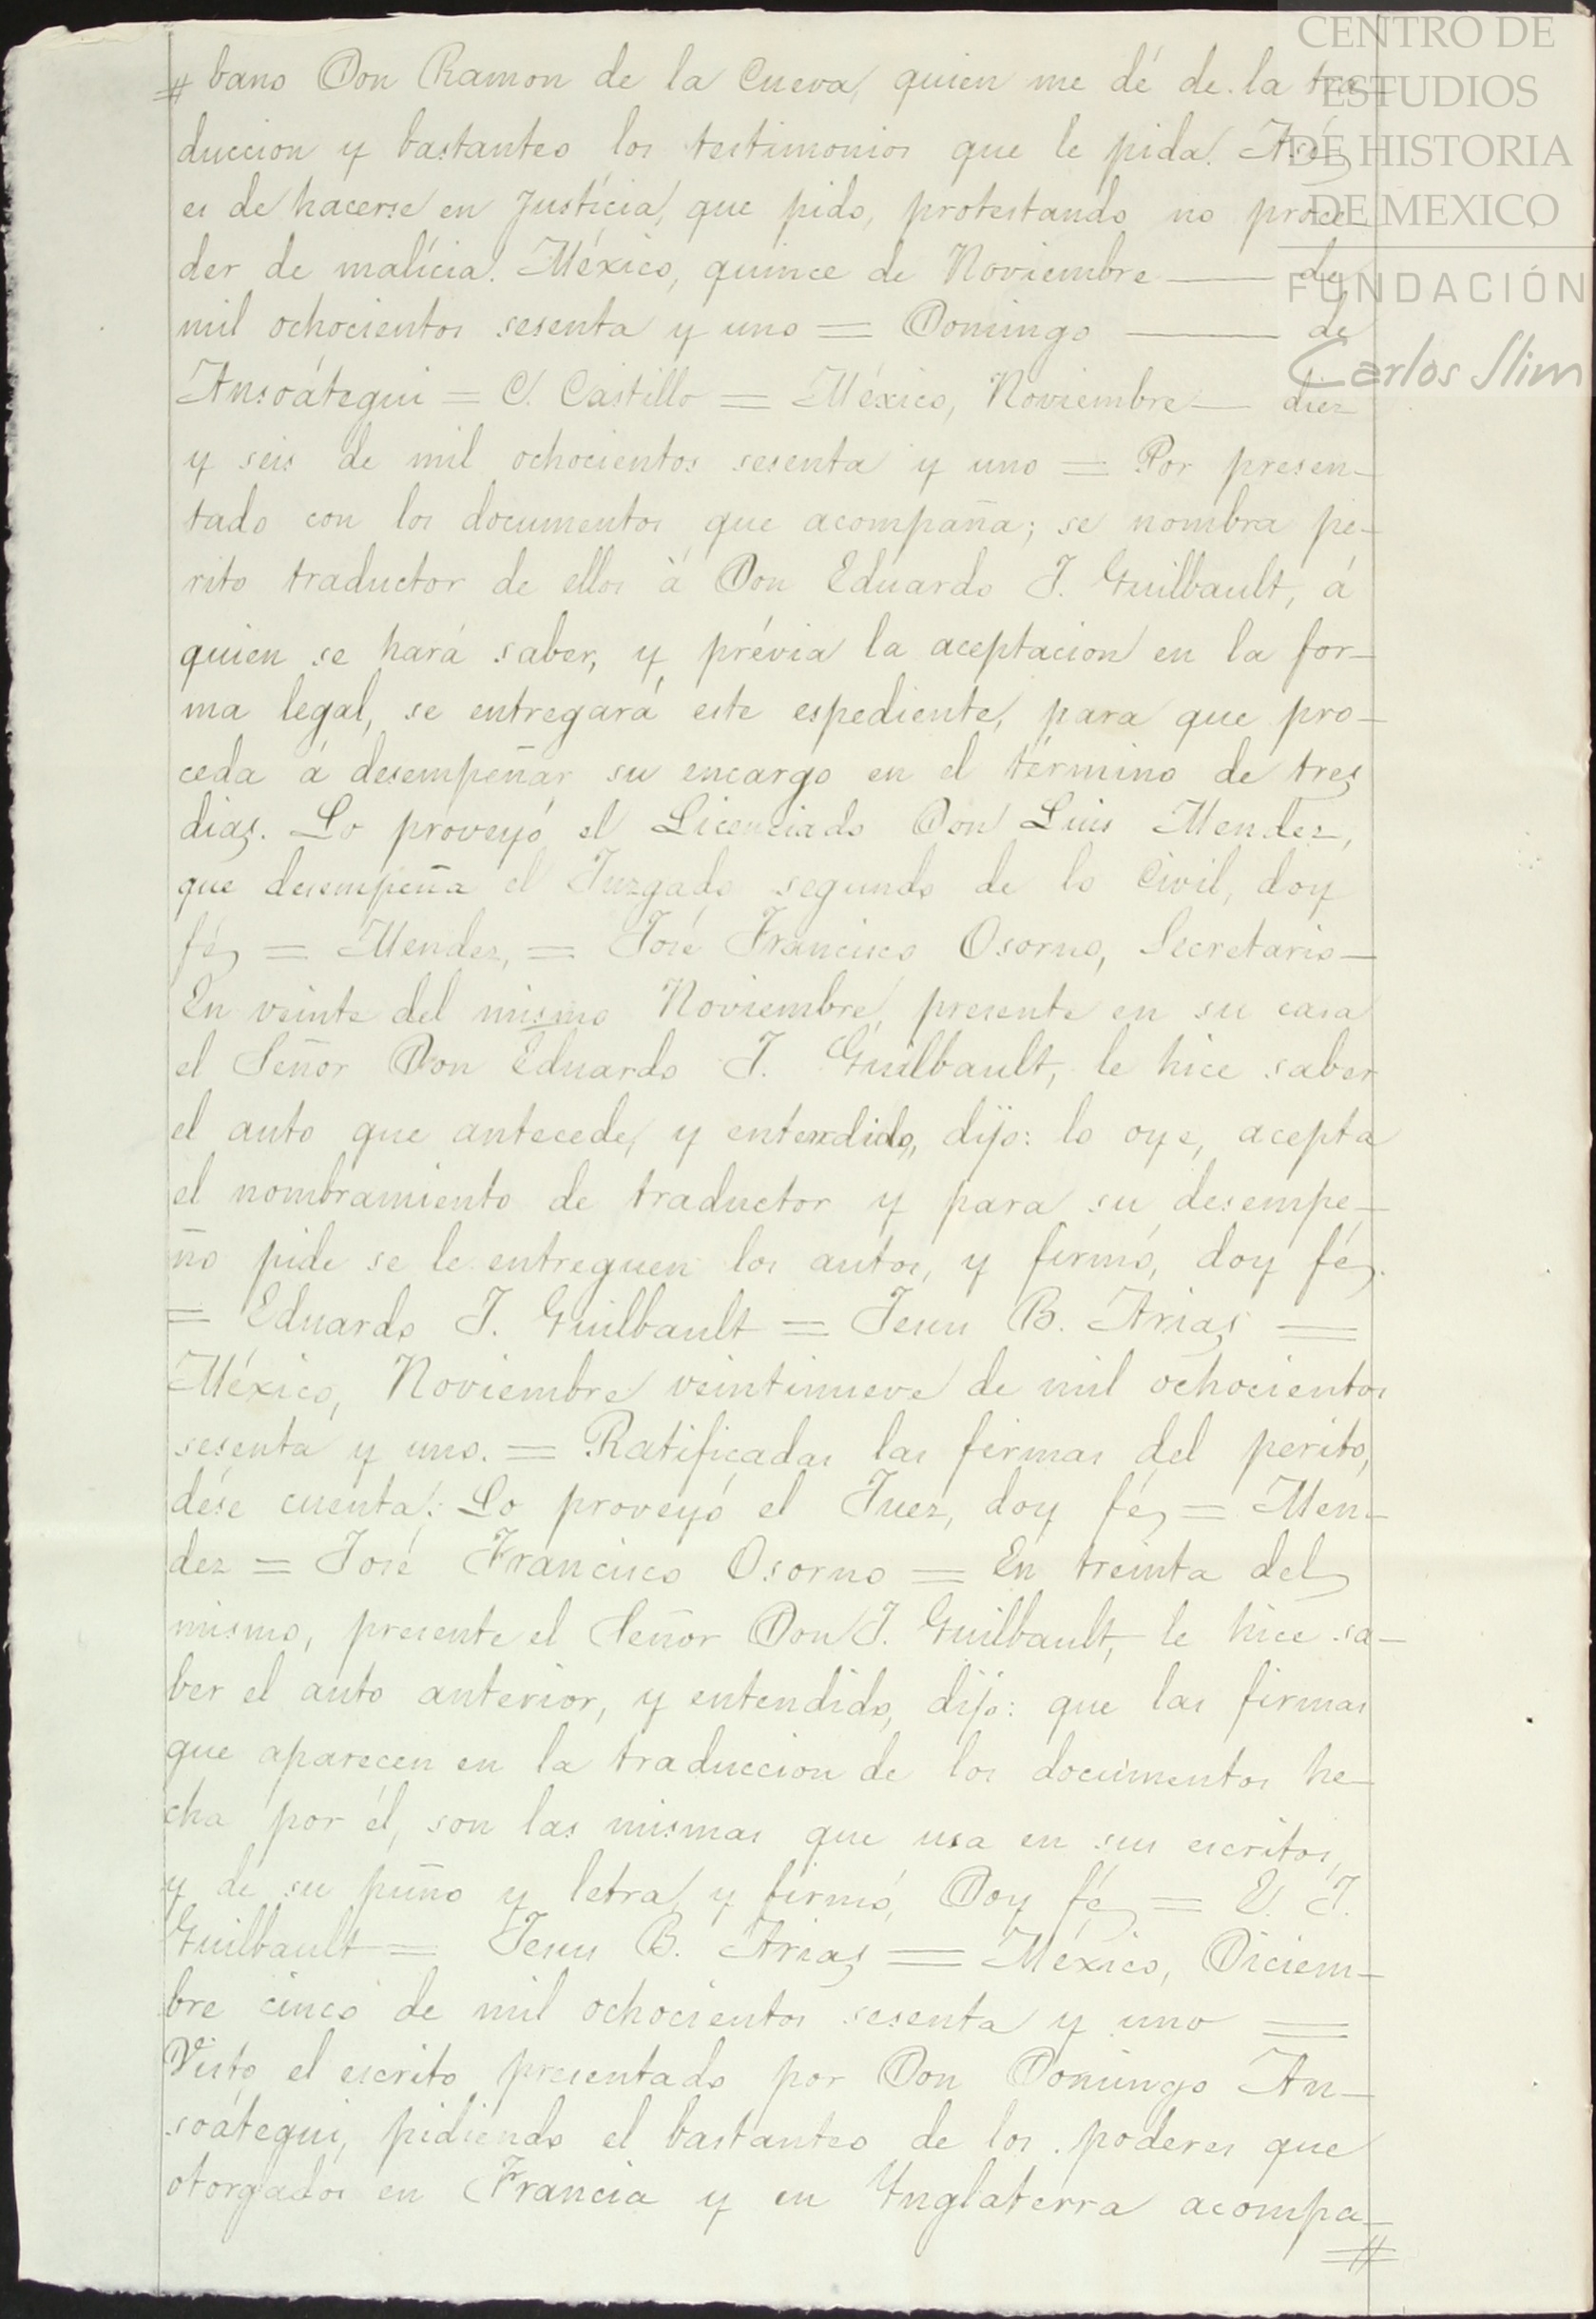 CENTRO DE
ESTUDIOS
DE HISTORIA
DE MEXICO
FUNDACIÓN
Carlos Slim
# bano Don Ramon de la Cueva, quien me dé de la tra-
duccion y bastanteo los testimonios que le pida. Así
es de hacerse en Justícia, que pido, protestando no proce-
der de malícia. México, quince de Noviembre — de
mil ochocientos sesenta y uno = Domingo — de
Ansoátegui = C. Castillo = México, Noviembre — diez
y seis de mil ochocientos sesenta y uno = Por presen-
tado con los documentos que acompaña; se nombra pe-
rito traductor de ellos á Don Eduardo J. Guilbault, á
quien se hará saber, y, prévia la aceptacion en la for-
ma legal, se entregará este espediente, para que pro-
ceda á desempeñar su encargo en el término de tres
dias. Lo proveyó el Licenciado Don Luis Mendez,
que desempeña el Juzgado segundo de lo Civil, doy
fé = Mendez, = José Francisco Osorno, Secretario—
En veinte del mismo Noviembre, presente en su casa
el Señor Don Eduardo J. Guilbault, le hice saber
el auto que antecede, y entendido, dijo: lo oye, acepta
el nombramiento de traductor y para su desempe-
ño pide se le entreguen los autos, y firmó, doy fé.
= Eduardo J. Guilbault = Jesus B. Arias =
México, Noviembre veintinueve de mil ochocientos
sesenta y uno. = Ratificadas las firmas del perito,
dése cuenta: Lo proveyó el Juez, doy fé = Men-
dez = José Francisco Osorno = En treinta del
mismo, presente el Señor Don J. Guilbault, le hice sa-
ber el auto anterior, y entendido, dijo: que las firmas
que aparecen en la traduccion de los documentos he-
cha por él, son las mismas que usa en sus escritos,
y de su puño y letra, y firmó, Doy fé = E. J.
Guilbault = Jesus B. Arias = México, Diciem-
bre cinco de mil ochocientos sesenta y uno =
Visto el escrito presentado por Don Domingo An-
soátegui, pidiendo el bastanteo de los poderes que
otorgados en Francia y en Ynglaterra acompa-
#